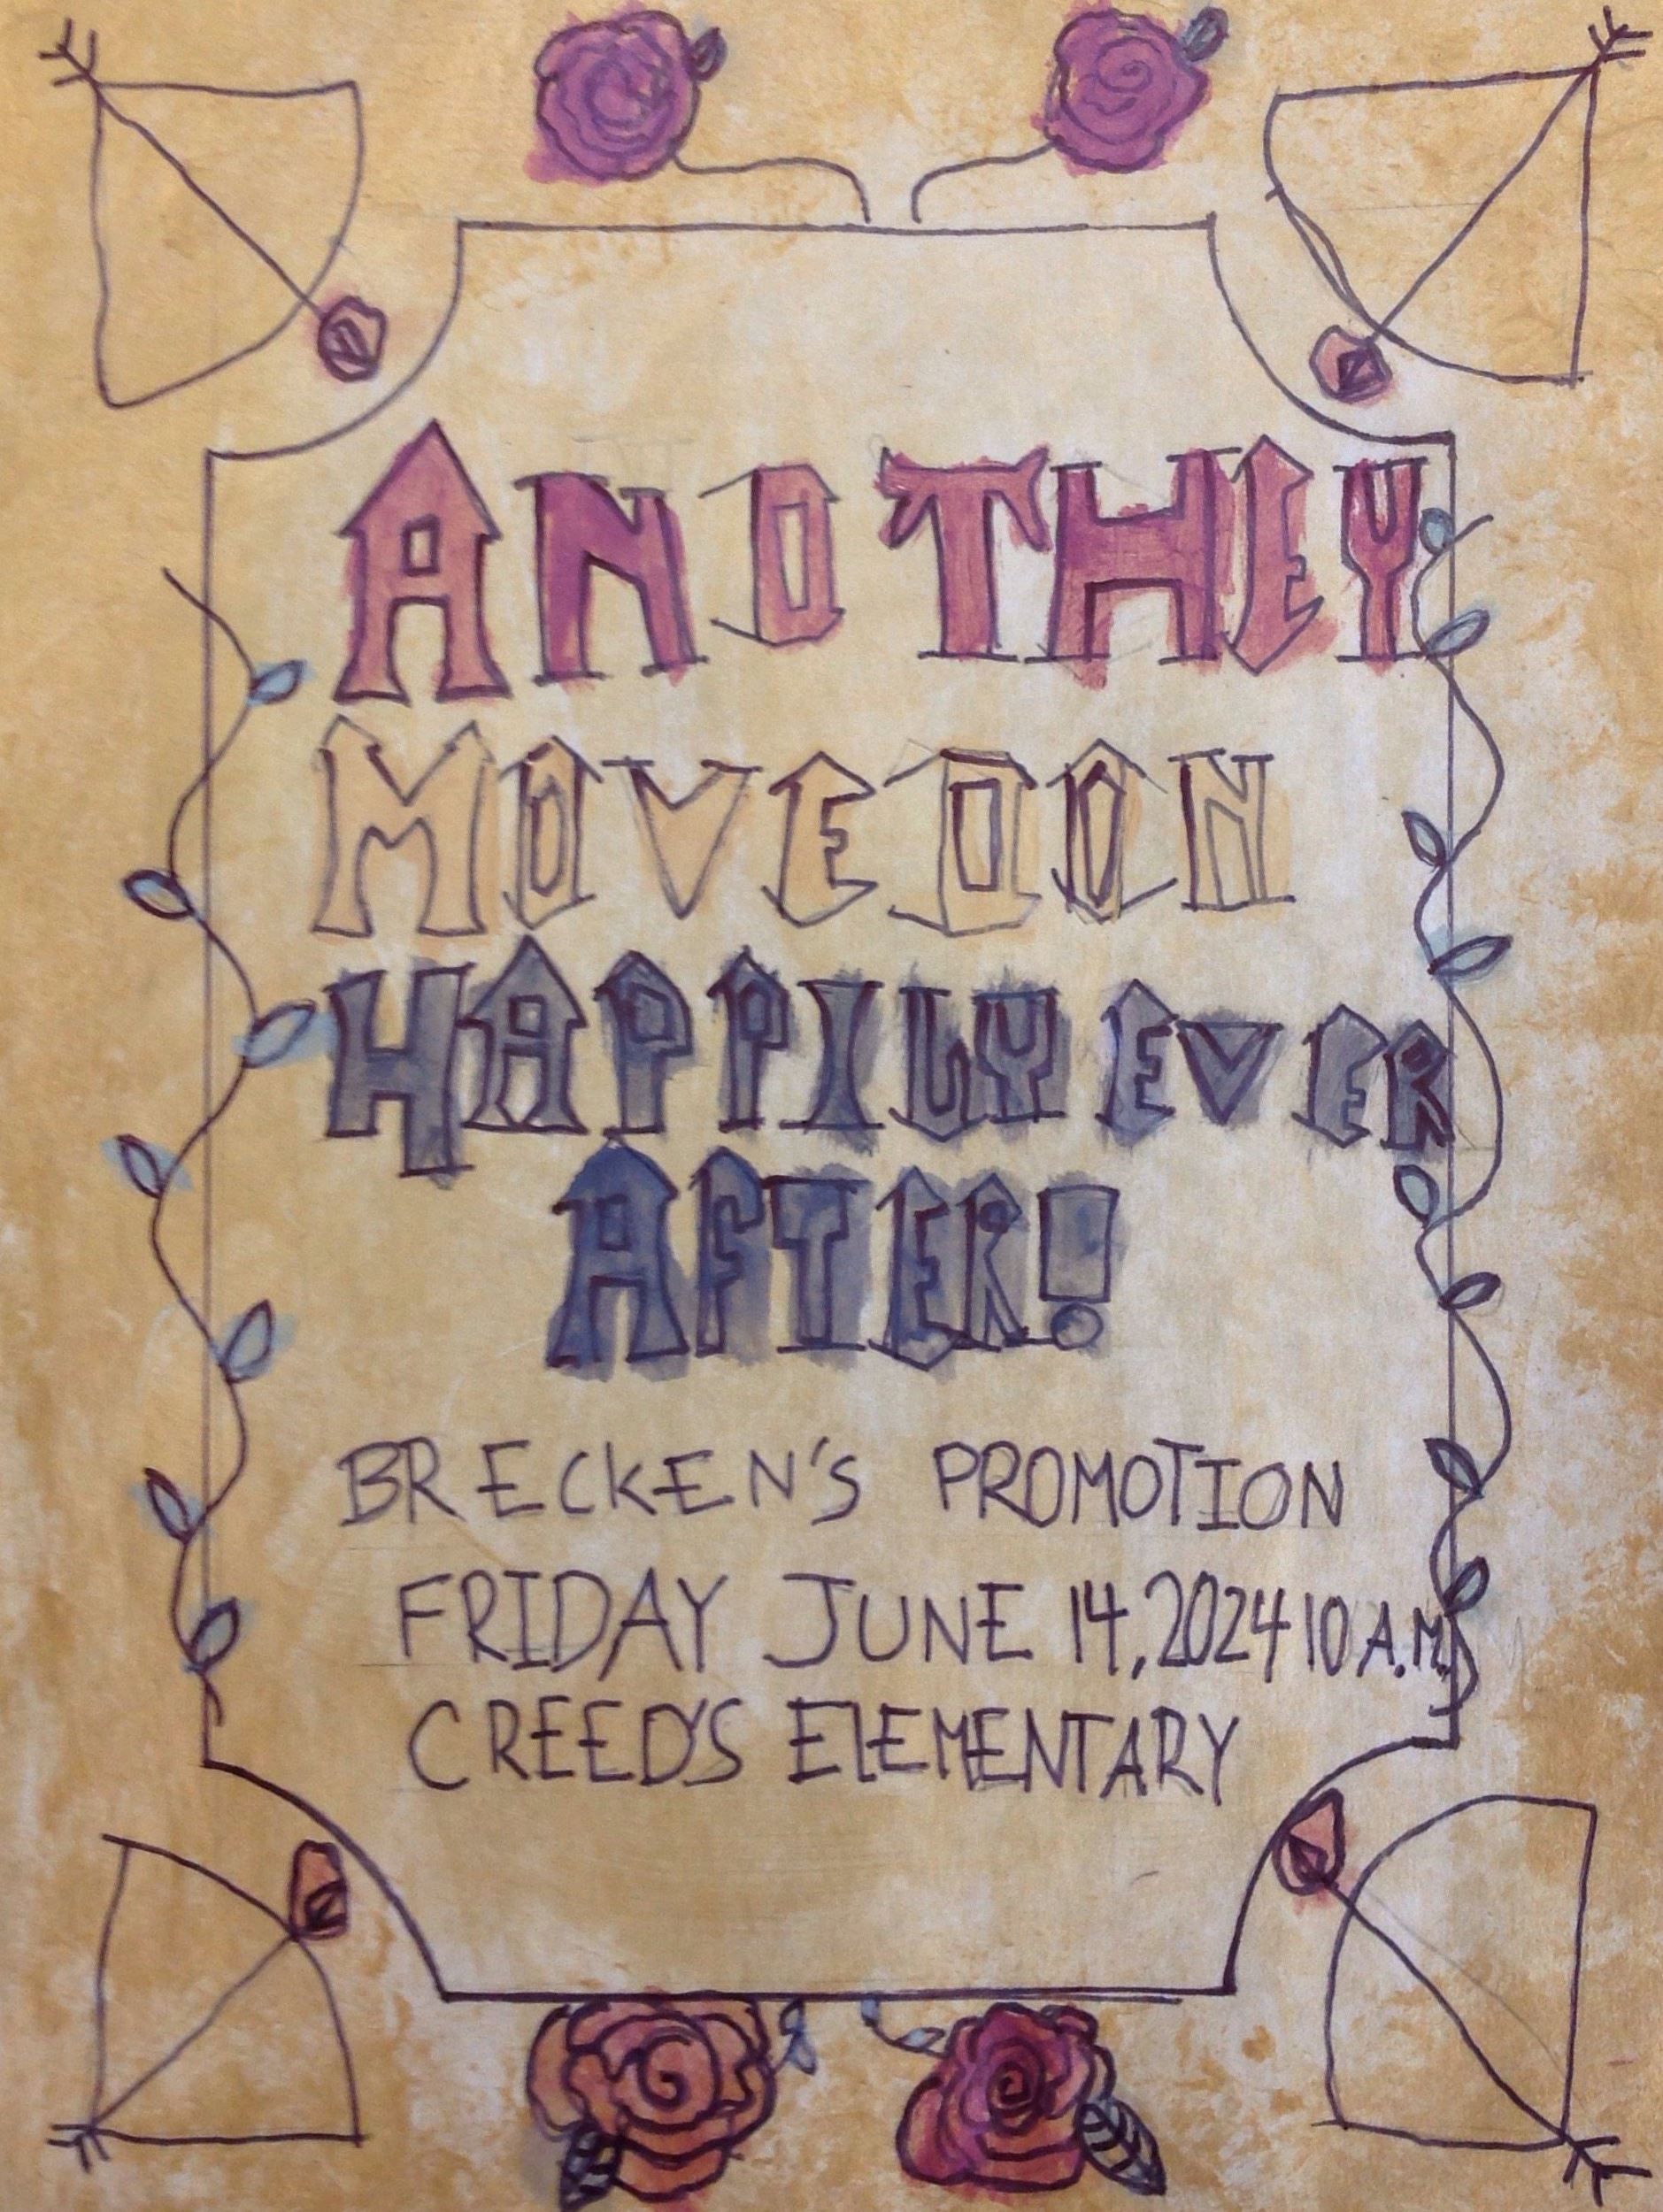 ANDTHEY
MOVEDON
HAPPILY EVER
AFTER!
BRECKEN'S PROMOTION
FRIDAY JUNE 14, 2024 10 A.M.
CREED'S ELEMENTARY